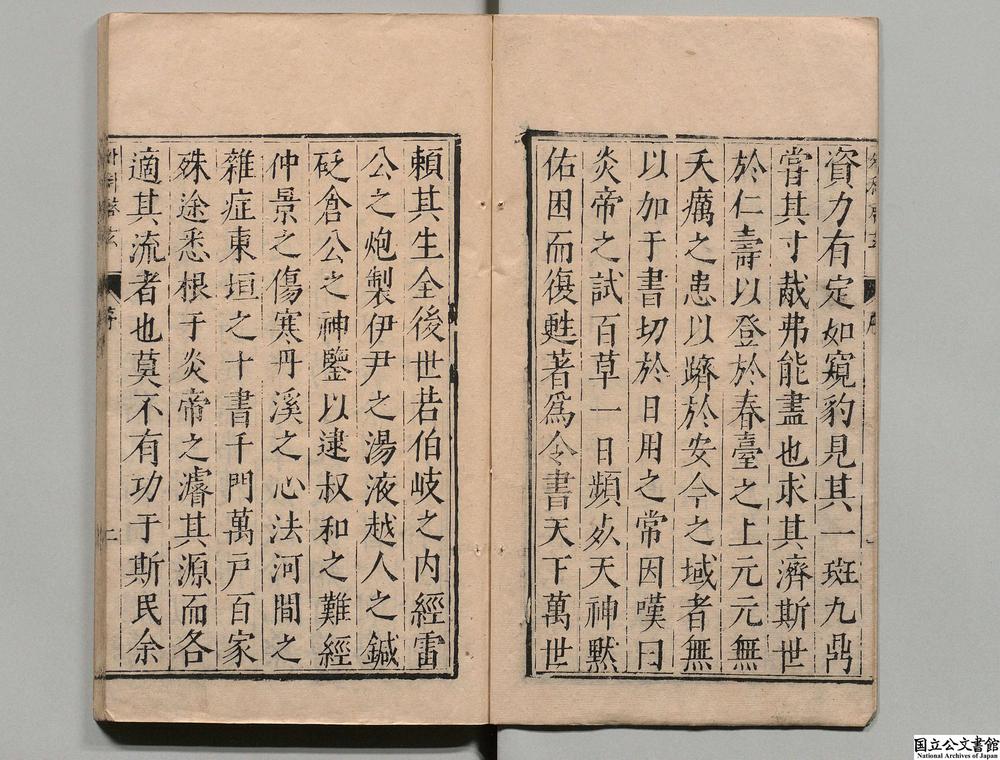 資力有定如窺豹見其一斑九鼎
嘗其寸胾弗能盡也求其濟斯世
於仁壽以登於春臺之上元元無
夭癘之患以躋於安全之域者無
以加于書切於日用之常因嘆曰
炎帝之試百草一日頻死天神默
佑困而復甦著為金書天下萬世
賴其生全後世若伯岐之內經雷
公之炮製伊尹之湯液越人之鍼
砭倉公之神鑒以逮叔和之難經
仲景之傷寒丹溪之心法河間之
雜症東垣之十書千門萬戶百家
殊途悉根于炎帝之濬其源而各
適其流者也莫不有功于斯民余
外科啓玄
序
二
国立公文書館
National Archives of Japan